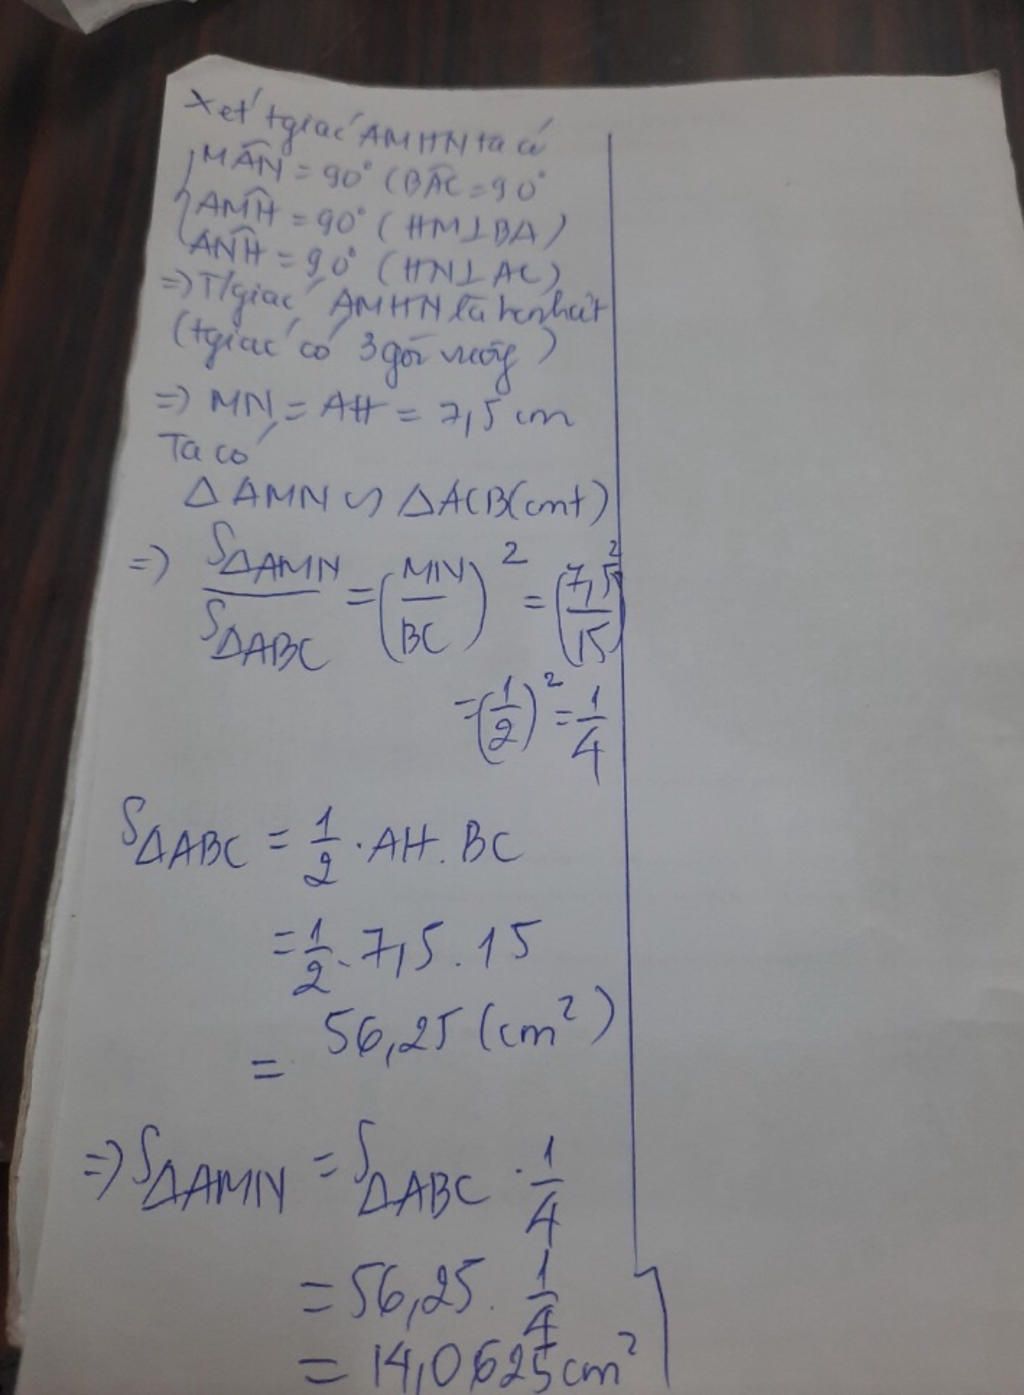 Xét t/giác AMHN ta có
MÂN = 90° (BÂC = 90°
AM̂H = 90° (HM⊥BA)
AN̂H = 90° (HN⊥AC)
=> T/giác AMHN là hcnhật
(tgiác có 3 góc vuông)
=> MN = AH = 7,5 cm
Ta có
Δ AMN ∽ ΔACB (cmt)
=> SΔAMN / SΔABC = (MN/BC)² = (7,5/15)²
= (1/2)² = 1/4
SΔABC = 1/2 · AH. BC
= 1/2 . 7,5 . 15
= 56,25 (cm²)
=> SΔAMN = SΔABC · 1/4
= 56,25. 1/4
= 14,0625 cm²